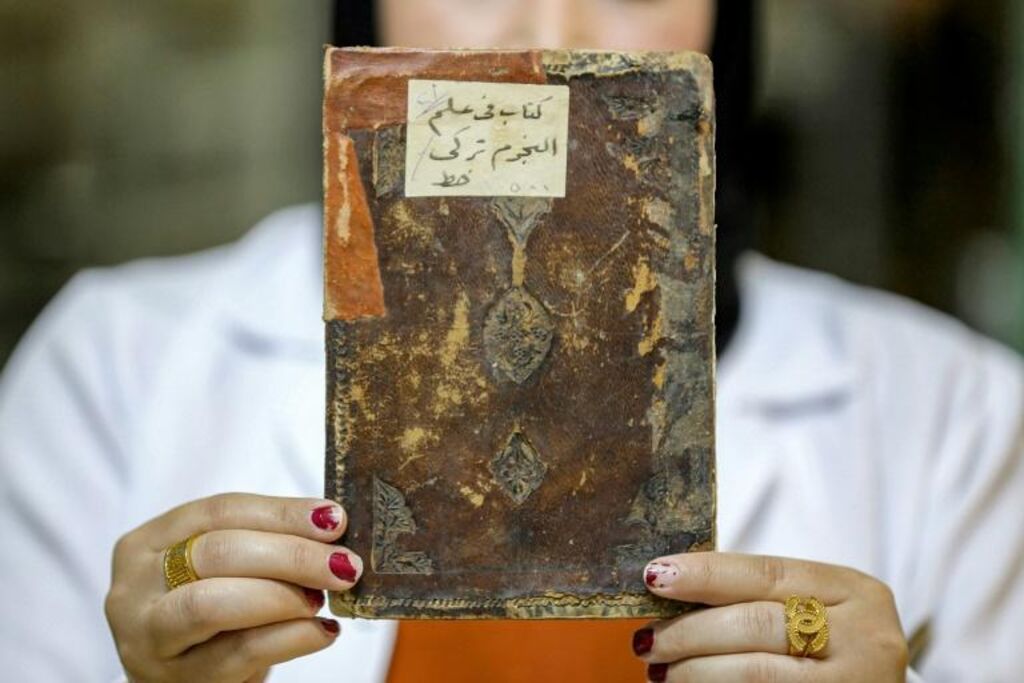 كتاب في علم
النجوم تركي
خط